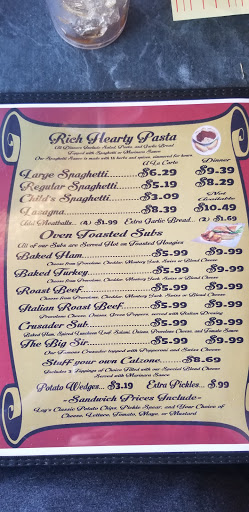 Rich Hearty Pasta
All Dinners Include: Salad, Pasta, and Garlic Bread
Topped with Spaghetti or Marinara Sauce
Our Spaghetti Sauce is made with 14 herbs and spices, simmered for hours.
A La Carte Dinner
Large Spaghetti......$6.29 $9.39
Regular Spaghetti......$5.19 $8.29
Child's Spaghetti......$3.09 Not Available
Lasagna......$8.39 $10.49
Add Meatballs... (4) $1.99 Extra Garlic Bread... (2) $1.69
Oven Toasted Subs
All of our Subs are Served Hot on Toasted Hoagies
Baked Ham......$5.99 $9.99
Choose from Provolone, Cheddar, Monterey Jack, Swiss or Blend Cheeses
Baked Turkey......$5.99 $9.99
Choose from Provolone, Cheddar, Monterey Jack, Swiss or Blend Cheeses
Roast Beef......$5.99 $9.99
Choose from Provolone, Cheddar, Monterey Jack, Swiss or Blend Cheeses
Italian Roast Beef......$5.99 $9.99
Provolone Cheese, Onion, Green Peppers, served with Italian Dressing
Crusader Sub......$5.99 $9.99
Baked Ham, Spiced Luncheon Loaf, Salami, Onion, Provolone Cheese, and Tomato Sauce
The Big Sir......$9.99 $9.99
Our Famous Crusader topped with Pepperoni and Swiss Cheese
Stuff your own Calzone......$8.69
Includes 2 Toppings of Choice Filled with our Special Blend Cheese
Served with Marinara Sauce
Potato Wedges... $3.19 Extra Pickles... $.99
~Sandwich Prices Include~
Lay's Classic Potato Chips, Pickle Spear, and Your Choice of
Cheese, Lettuce, Tomato, Mayo, or Mustard